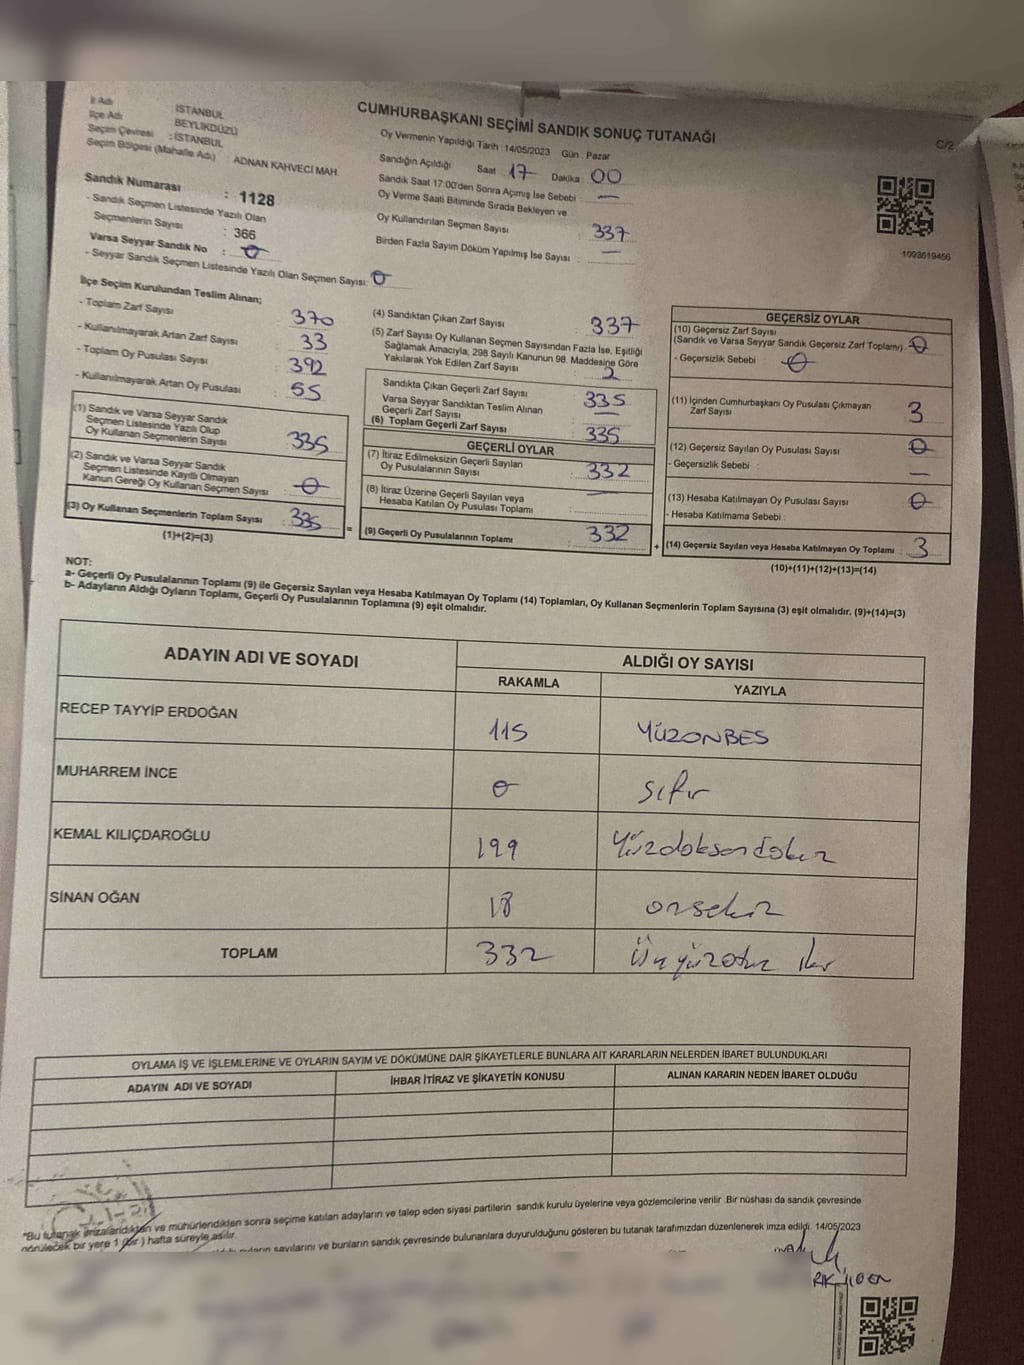 CUMHURBAŞKANI SEÇİMİ SANDIK SONUÇ TUTANAĞI
C/2
İl Adı : İSTANBUL
İlçe Adı : BEYLİKDÜZÜ
Seçim Çevresi : İSTANBUL
Seçim Bölgesi (Mahalle Adı) : ADNAN KAHVECİ MAH.
Sandık Numarası : 1128
- Sandık Seçmen Listesinde Yazılı Olan
Seçmenlerin Sayısı : 366
Varsa Seyyar Sandık No : 0
- Seyyar Sandık Seçmen Listesinde Yazılı Olan Seçmen Sayısı: 0
Oy Vermenin Yapıldığı Tarih : 14/05/2023 Gün : Pazar
Sandığın Açıldığı Saat 17 Dakika : 00
Sandık Saat 17:00'den Sonra Açımış İse Sebebi : —
Oy Verme Saati Bitiminde Sırada Bekleyen ve
Oy Kullandırılan Seçmen Sayısı : 337
Birden Fazla Sayım Döküm Yapılmış İse Sayısı : —
1093619456
İlçe Seçim Kurulundan Teslim Alınan;
- Toplam Zarf Sayısı : 370
- Kullanılmayarak Artan Zarf Sayısı : 33
- Toplam Oy Pusulası Sayısı : 392
- Kullanılmayarak Artan Oy Pusulası : 55
(1) Sandık ve Varsa Seyyar Sandık
Seçmen Listesinde Yazılı Olup
Oy Kullanan Seçmenlerin Sayısı : 335
(2) Sandık ve Varsa Seyyar Sandık
Seçmen Listesinde Kayıtlı Olmayan
Kanun Gereği Oy Kullanan Seçmen Sayısı : 0
(3) Oy Kullanan Seçmenlerin Toplam Sayısı : 335
(1)+(2)=(3)
(4) Sandıktan Çıkan Zarf Sayısı : 337
(5) Zarf Sayısı Oy Kullanan Seçmen Sayısından Fazla İse, Eşitliği
Sağlamak Amacıyla, 298 Sayılı Kanunun 98. Maddesine Göre
Yakılarak Yok Edilen Zarf Sayısı : 2
Sandıkta Çıkan Geçerli Zarf Sayısı : 335
Varsa Seyyar Sandıktan Teslim Alınan
Geçerli Zarf Sayısı : —
(6) Toplam Geçerli Zarf Sayısı : 335
GEÇERLİ OYLAR
(7) İtiraz Edilmeksizin Geçerli Sayılan
Oy Pusulalarının Sayısı : 332
(8) İtiraz Üzerine Geçerli Sayılan veya
Hesaba Katılan Oy Pusulası Toplamı : —
= (9) Geçerli Oy Pusulalarının Toplamı : 332
GEÇERSİZ OYLAR
(10) Geçersiz Zarf Sayısı
(Sandık ve Varsa Seyyar Sandık Geçersiz Zarf Toplamı) : 0
- Geçersizlik Sebebi : 0
(11) İçinden Cumhurbaşkanı Oy Pusulası Çıkmayan
Zarf Sayısı : 3
(12) Geçersiz Sayılan Oy Pusulası Sayısı : 0
- Geçersizlik Sebebi : —
(13) Hesaba Katılmayan Oy Pusulası Sayısı : 0
- Hesaba Katılmama Sebebi :
+ (14) Geçersiz Sayılan veya Hesaba Katılmayan Oy Toplamı : 3
(10)+(11)+(12)+(13)=(14)
NOT:
a- Geçerli Oy Pusulalarının Toplamı (9) ile Geçersiz Sayılan veya Hesaba Katılmayan Oy Toplamı (14) Toplamları, Oy Kullanan Seçmenlerin Toplam Sayısına (3) eşit olmalıdır. (9)+(14)=(3)
b- Adayların Aldığı Oyların Toplamı, Geçerli Oy Pusulalarının Toplamına (9) eşit olmalıdır.
ADAYIN ADI VE SOYADI ALDIĞI OY SAYISI
RAKAMLA YAZIYLA
RECEP TAYYİP ERDOĞAN 115 YÜZONBES
MUHARREM İNCE 0 sıfır
KEMAL KILIÇDAROĞLU 199 Yüzdoksandokuz
SİNAN OĞAN 18 onsekiz
TOPLAM 332 Üçyüzotuz iki
OYLAMA İŞ VE İŞLEMLERİNE VE OYLARIN SAYIM VE DÖKÜMÜNE DAİR ŞİKAYETLERLE BUNLARA AİT KARARLARIN NELERDEN İBARET BULUNDUKLARI
ADAYIN ADI VE SOYADI İHBAR İTİRAZ VE ŞİKAYETİN KONUSU ALINAN KARARIN NEDEN İBARET OLDUĞU
*Bu tutanak imzalandıktan ve mühürlendikten sonra seçime katılan adayların ve talep eden siyasi partilerin sandık kurulu üyelerine veya gözlemcilerine verilir. Bir nüshası da sandık çevresinde
görülecek bir yere 1 (bir) hafta süreyle asılır.
sayılarını ve bunların sandık çevresinde bulunanlara duyurulduğunu gösteren bu tutanak tarafımızdan düzenlenerek imza edildi. 14/05/2023